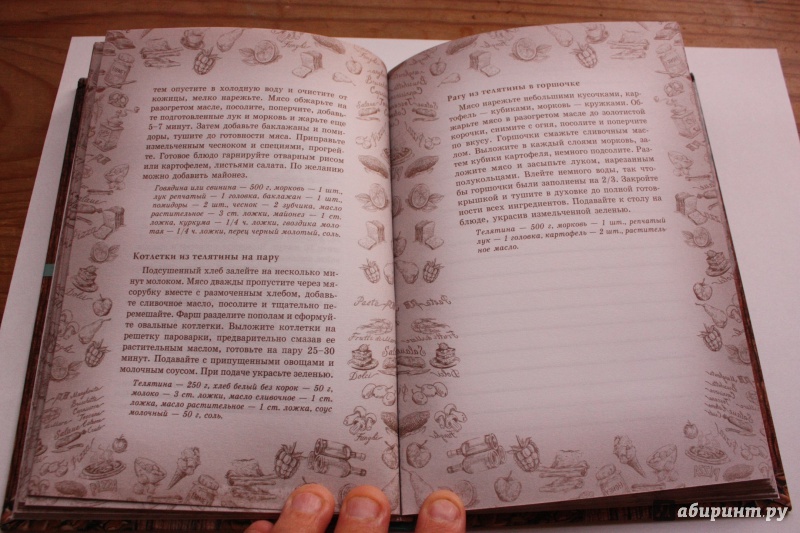 тем опустите в холодную воду и очистите от
кожицы, мелко нарежьте. Мясо обжарьте на
разогретом масле, посолите, поперчите, добавь-
те подготовленные лук и морковь и жарьте еще
5–7 минут. Затем добавьте баклажаны и поми-
доры, тушите до готовности мяса. Приправьте
измельченным чесноком и специями, прогрей-
те. Готовое блюдо гарнируйте отварным рисом
или картофелем, листьями салата. По желанию
можно добавить майонез.
Говядина или свинина — 500 г, морковь — 1 шт.,
лук репчатый — 1 головка, баклажан — 1 шт.,
помидоры — 2 шт., чеснок — 2 зубчика, масло
растительное — 3 ст. ложки, майонез — 1 ст.
ложка, куркума — 1/4 ч. ложки, гвоздика моло-
тая — 1/4 ч. ложки, перец черный молотый, соль.
Котлетки из телятины на пару
Подсушенный хлеб залейте на несколько ми-
нут молоком. Мясо дважды пропустите через мя-
сорубку вместе с размоченным хлебом, добавь-
те сливочное масло, посолите и тщательно пе-
ремешайте. Фарш разделите пополам и сформуй-
те овальные котлетки. Выложите котлетки на
решетку пароварки, предварительно смазав ее
растительным маслом, готовьте на пару 25–30
минут. Подавайте с припущенными овощами и
молочным соусом. При подаче украсьте зеленью.
Телятина — 250 г, хлеб белый без корок — 50 г,
молоко — 3 ст. ложки, масло сливочное — 1 ст.
ложка, масло растительное — 1 ст. ложка, соус
молочный — 50 г, соль.
Рагу из телятины в горшочке
Мясо нарежьте небольшими кусочками, кар-
тофель — кубиками, морковь — кружками. Об-
жарьте мясо в разогретом масле до золотистой
корочки, снимите с огня, посолите и поперчите
по вкусу. Горшочки смажьте сливочным мас-
лом. Выложите в каждый слоями морковь, за-
тем кубики картофеля, немного подсолите. Раз-
ложите мясо и засыпьте луком, нарезанным
полукольцами. Влейте немного воды, так что-
бы горшочки были заполнены на 2/3. Закройте
крышкой и тушите в духовке до полной готов-
ности всех ингредиентов. Подавайте к столу на
блюде, украсив измельченной зеленью.
Телятина — 500 г, морковь — 1 шт., репчатый
лук — 1 головка, картофель — 2 шт., раститель-
ное масло.
абиринт.ру